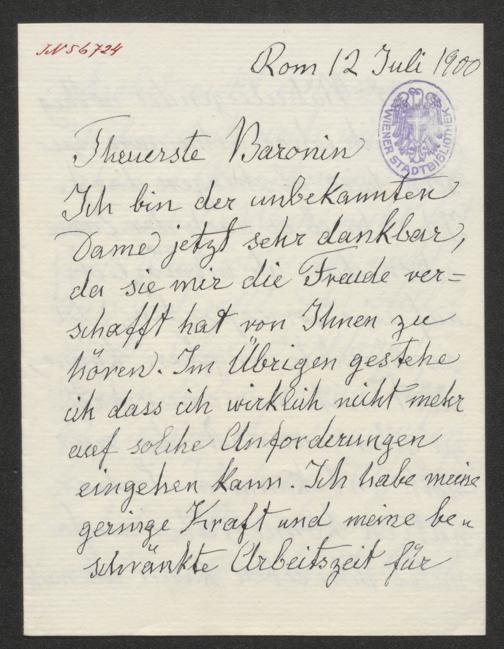 JN 56724
Rom 12 Juli 1900
WIENER STADTBIBLIOTHEK
Theuerste Baronin
Ich bin der unbekannten
Dame jetzt sehr dankbar,
da sie mir die Freude ver=
schafft hat von Ihnen zu
hören. Im Übrigen gestehe
ich dass ich wirklich nicht mehr
auf solche Anforderungen
eingehen kann. Ich habe meine
geringe Kraft und meine be„
schränkte Arbeitszeit für